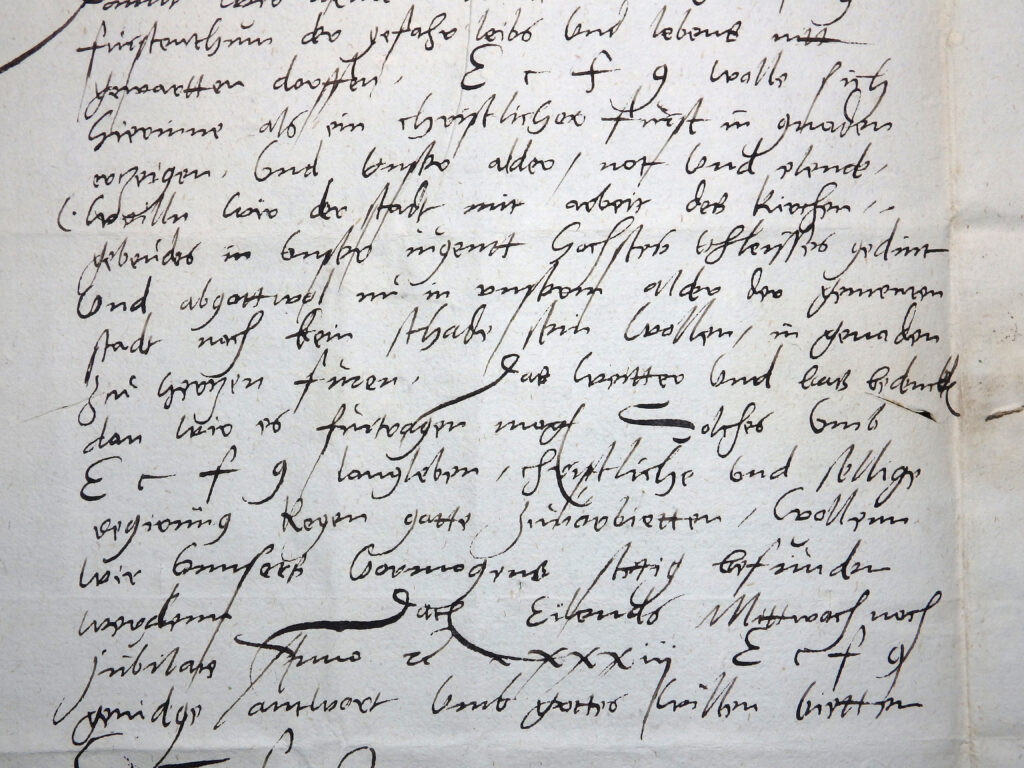 fürstenthum der gefahr leibs und lebens nitt
gewartten dorffen. E c f g wolle sich
hierinne als ein christlicher fürst in gnaden
erzeigen. Und Unser alder / not Und elende,
(. Weilln wir der stadt mit arbeit des kirchen,,
gebeudes in Unser iugentt hochstes Vhleisses gedint
Und abgott wol nu in unserm alder der gemeinen
stadt noch kein schade sein wollen, in genaden
zu hertzen füren. Das weitter Und bas bedenckt
dan wir es fürtragen mogen Solches Umb
E c f g langleben, christliche und sellige
regirüng kegen gotte zuuorbietten, wollenn
wir Unnsers Vormogens stetig befunden
werdenn Datum Eilends Mittwoch noch
jubilate Anno xxxiij E c f g
genidge antwort Umb gottes willen bietten